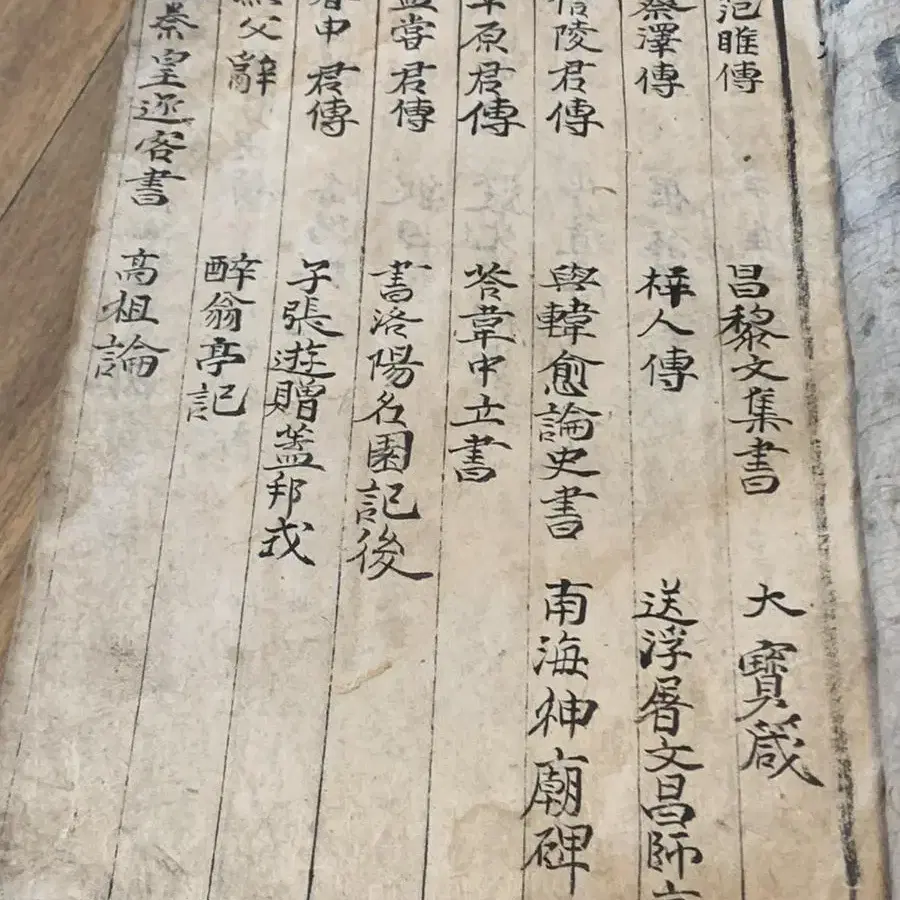 范睢傳 昌黎文集書 大寶箴
蔡澤傳 梓人傳 送浮屠文昌師
信陵君傳 與韓愈論史書 南海神廟碑
原君傳 答韋中立書
嘗君傳 書洛陽名園記後
申君傳 子張遊贈盖邦戎
父辭 醉翁亭記
秦皇逐客書 高祖論